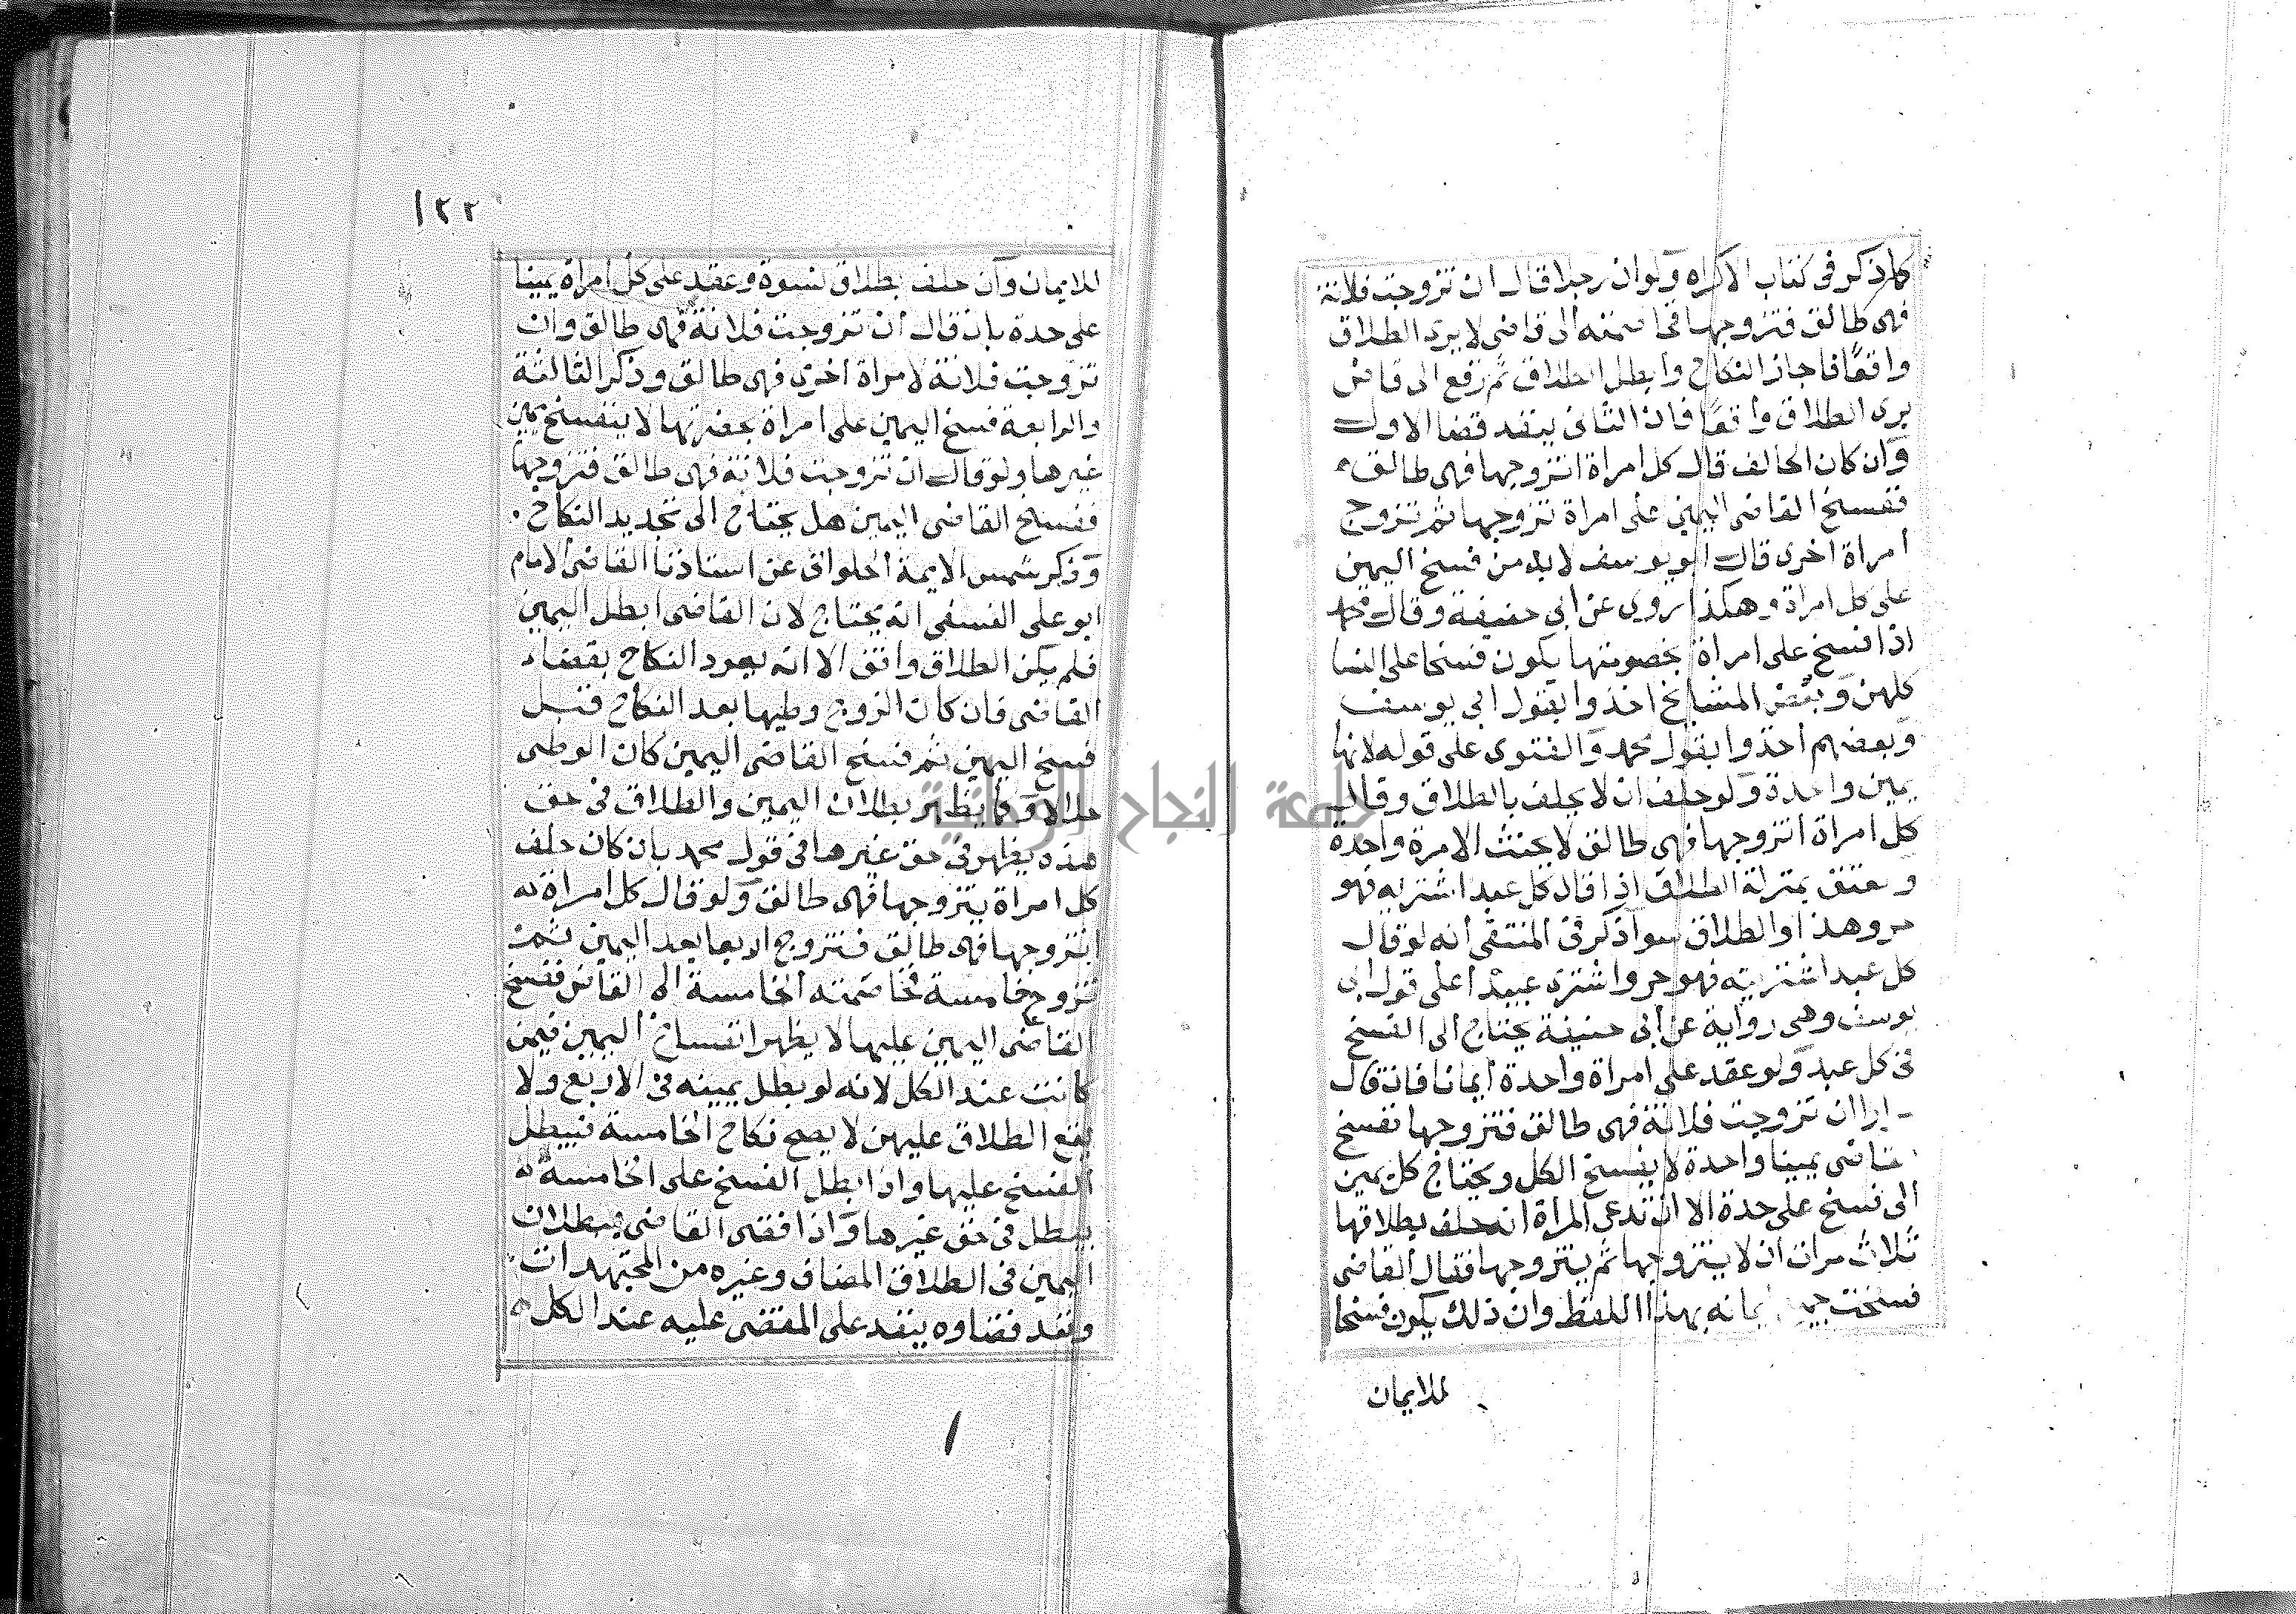 كما ذكر في كتاب الاكراه ولو ان رجلا قال ان تزوجت فلانة
فهي طالق فتزوجها فخاصمته الى قاضي لا يرى الطلاق
واقعًا فاجاز النكاح وابطل الطلاق ثم رفع الى قاض
يرى الطلاق واقعًا فان الثاني ينفد قضا الاول
وان كان الحالف قال كل امراة اتزوجها فهي طالق
ففسخ القاضي اليمين على امراة تزوجها ثم تزوج
امراة اخرى قال ابو يوسف لابد من فسخ اليمين
على كل امراة وهكذا روي عن ابي حنيفة وقال محمد
اذا فسخ على امراة بخصومتها يكون فسخا على النسا
كلهن وبعض المشايخ اخذوا بقول ابي يوسف
وبعضهم اخذوا بقول محمد والفتوى على قوله لانها
يمين واحدة ولو حلف ان لا يحلف بالطلاق وقال
كل امراة اتزوجها فهي طالق لا يحنث الا مرة واحدة
والعتق بمنزلة الطلاق اذا قال كل عبد اشتريه فهو
حر وهذا والطلاق سوا ذكر في المنتقى انه لو قال
كل عبد اشتريته فهو حر واشترى عبيدا على قول ابي
يوسف وهي رواية عن ابي حنيفة يحتاج الى الفسخ
في كل عبد ولو عقد على امراة واحدة ايمانا فان قال
ـرارا ان تزوجت فلانة فهي طالق فتزوجها ففسخ
القاضي يمينا واحدة لا ينفسخ الكل ويحتاج كل يمين
الى فسخ على حدة الا ان تدعي المراة انه حلف بطلاقها
ثلاث مرات ان لا يتزوجها ثم يتزوجها فقال القاضي
فسخت ايمانه بهذا اللفظ وان ذلك يكون فسخا
للايمان
١٢٢
للايمان وان حلف بطلاق نسوة وعقد على كل امراة يمينا
على حدة بان قال ان تزوجت فلانة فهي طالق وان
تزوجت فلانة لامراة اخرى فهي طالق وذكر الثالثة
والرابعة فسخ اليمين على امراة بحضرتها لا ينفسخ يمين
غيرها ولو قال ان تزوجت فلانة فهي طالق فتزوجها
ففسخ القاضي اليمين هل يحتاج الى تجديد النكاح
وذكر شمس الايمة الحلواني عن استاذنا القاضي الامام
ابو على النسفي انه يحتاج لان القاضي ابطل اليمين
فلم يكن الطلاق واقع الا انه يعود النكاح بقضاء
القاضي فان كان الزوج وطيها بعد النكاح قبل
فسخ اليمين ثم فسخ القاضي اليمين كان الوطي
حلالا وكما يظهر بطلان اليمين والطلاق في حق
هذه يظهر في حق غيرها في قول محمد بان كان حلف
كل امراة يتزوجها فهي طالق ولو قال كل امراة
اتزوجها فهي طالق فتزوج اربعا بعد اليمين ثم
تزوج خامسة فخاصمته الخامسة الى القاضي ففسخ
القاضي اليمين عليها لا يظهر انفساخ اليمين فيمن
كانت عند الكل لانه لو بطل يمينه في الاربع ولا
يقع الطلاق عليهن لا يصح نكاح الخامسة فيبطل
الفسخ عليها واذا بطل الفسخ على الخامسة
يبطل في حق غيرها واذا قضى القاضي ببطلان
اليمين في الطلاق المضاف وغيره من المجتهدات
ونفد قضاوه ينفد على المقضى عليه عند الكل
١
جامعة النجاح الوطنية